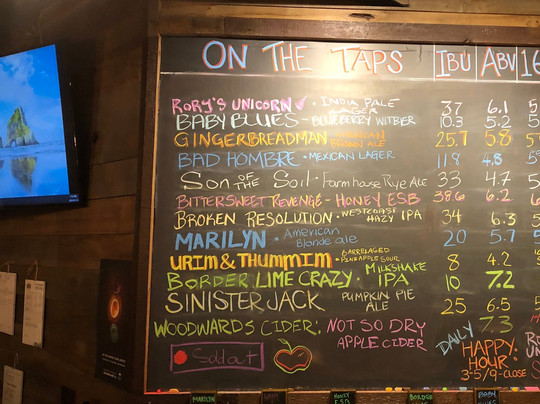 ON THE TAPS IBU ABV 16
RORY'S UNICORN • INDIA PALE LAGER 37 6.1 5
BABY BLUES - BLUEBERRY WITBIER 10.3 5.2 5
GINGERBREADMAN - AMERICAN BROWN ALE 25.7 5.8
BAD HOMBRE • MEXICAN LAGER 11.8 4.8
SON OF THE SOIL • Farmhouse Rye Ale 33 4.7
BITTERSWEET REVENGE - HONEY ESB 38.6 6.2
BROKEN RESOLUTION • WESTCOAST HAZY IPA 34 6.3
MARILYN • American Blonde ale 20 5.7
URIM & THUMMIM • BARRELAGED PINEAPPLE SOUR 8 4.2
BORDER LIME CRAZY • MILKSHAKE IPA 10 7.2
SINISTER JACK PUMPKIN PIE ALE 25 6.5
WOODWARDS CIDER: NOT SO DRY APPLE CIDER 7.3
Sold Out
DAILY HAPPY HOUR
3-5/9-CLOSE
MARILYN
HONEY ESB
BORDER
BABY BLUES